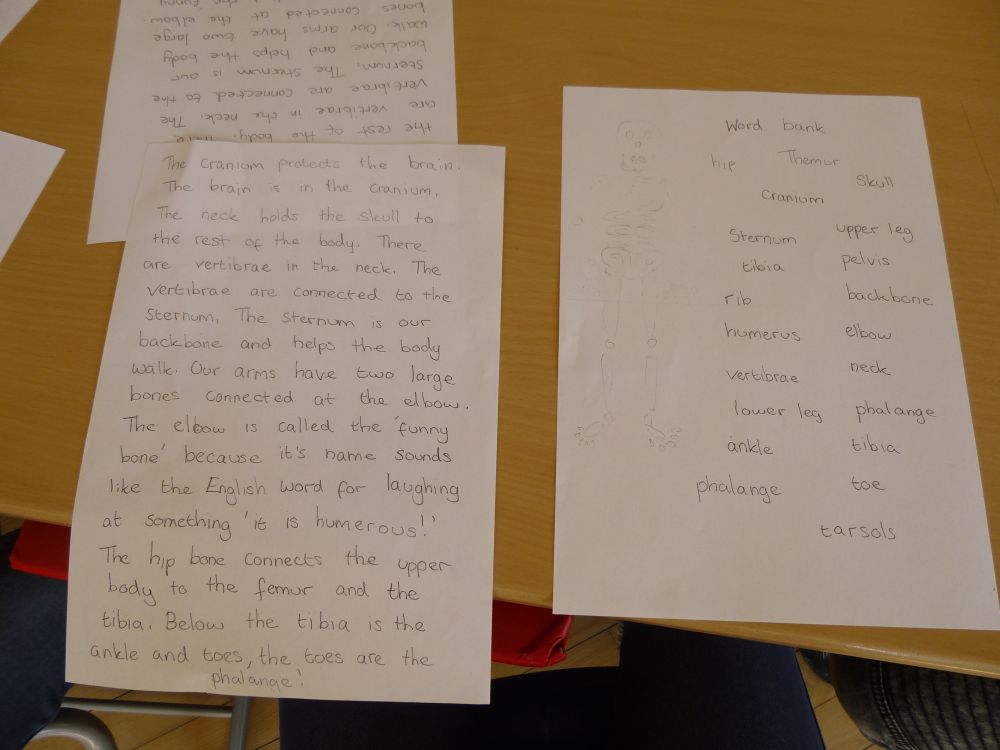 bones connected at the elbow.
walk. Our arms have two large
backbone and helps the body
sternum. The sternum is our
vertibrae are connected to the
are vertibrae in the neck. The
the rest of the body. There
The Cranium protects the brain.
The brain is in the cranium.
The neck holds the skull to
the rest of the body. There
are vertibrae in the neck. The
vertibrae are connected to the
Sternum. The Sternum is our
backbone and helps the body
walk. Our arms have two large
bones connected at the elbow.
The elbow is called the 'funny
bone' because it's name sounds
like the English word for laughing
at something 'it is humerous!'
The hip bone connects the upper
body to the femur and the
tibia. Below the tibia is the
ankle and toes, the toes are the
phalange!
Word bank
hip Themur
Skull
Cranium
Sternum upper leg
tibia pelvis
rib backbone
humerus elbow
vertibrae neck
lower leg phalange
ankle tibia
phalange toe
tarsols